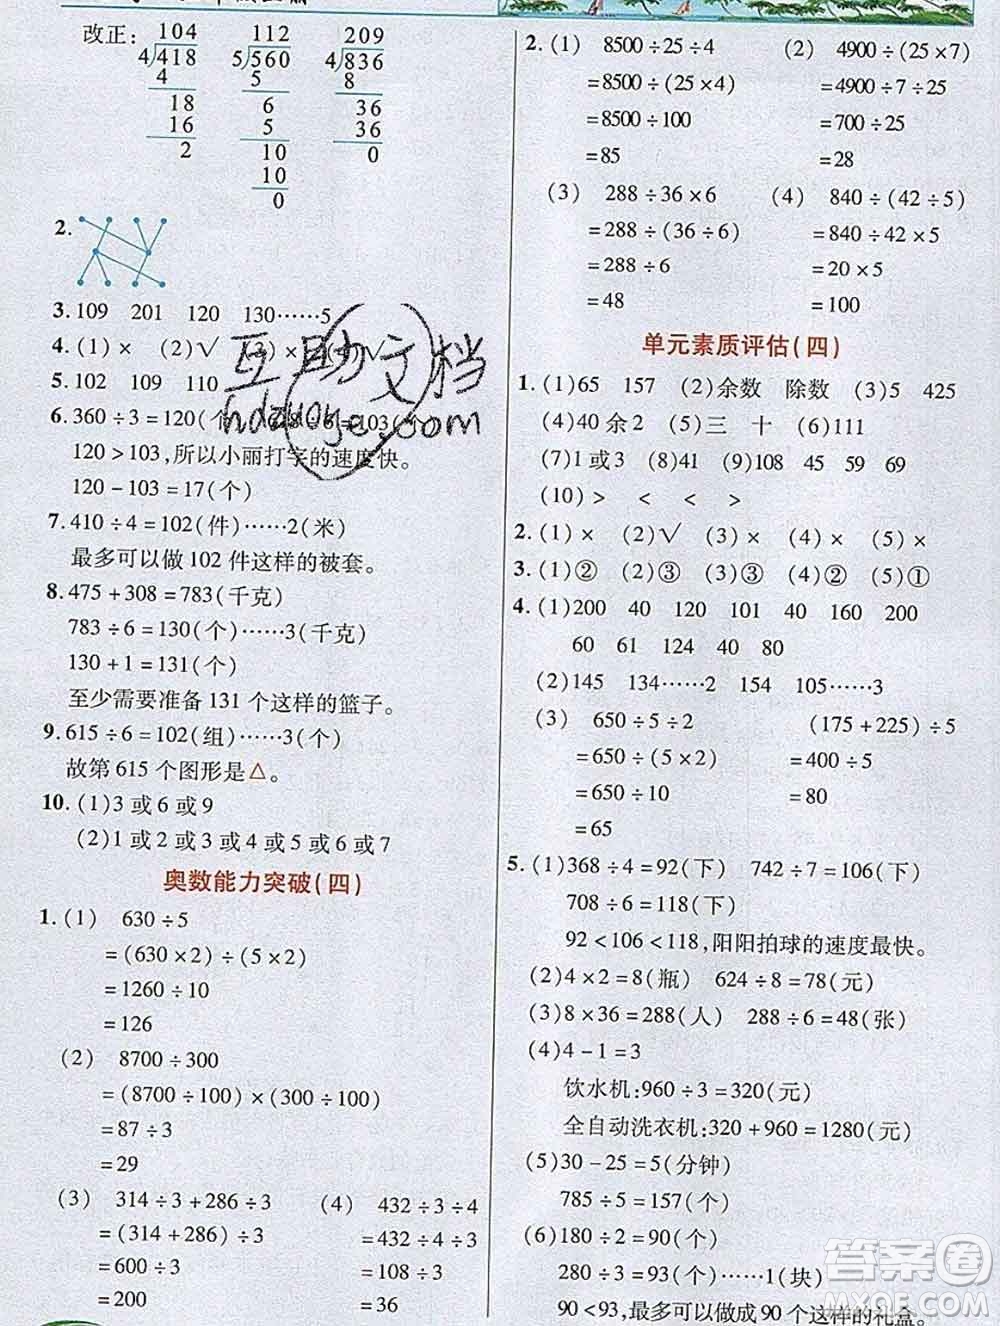 改正: 104 112 209
4)418 5)560 4)836
4 5 8
18 6 36
16 5 36
2 10 0
10
0
2.
3. 109 201 120 130……5
4. (1)× (2)√ (3)× √
5. 102 109 110
6. 360÷3=120(个) ÷6=103(个)
120>103,所以小丽打字的速度快。
120-103=17(个)
7. 410÷4=102(件)……2(米)
最多可以做 102 件这样的被套。
8. 475+308=783(千克)
783÷6=130(个)……3(千克)
130+1=131(个)
至少需要准备 131 个这样的篮子。
9. 615÷6=102(组)……3(个)
故第 615 个图形是△。
10. (1)3 或 6 或 9
(2)1 或 2 或 3 或 4 或 5 或 6 或 7
奥数能力突破(四)
1. (1) 630÷5
=(630×2)÷(5×2)
=1260÷10
=126
(2) 8700÷300
=(8700÷100)×(300÷100)
=87÷3
=29
(3) 314÷3+286÷3 (4) 432÷3÷4
=(314+286)÷3 =432÷4÷3
=600÷3 =108÷3
=200 =36
2. (1) 8500÷25÷4 (2) 4900÷(25×7)
=8500÷(25×4) =4900÷7÷25
=8500÷100 =700÷25
=85 =28
(3) 288÷36×6 (4) 840÷(42÷5)
=288÷(36÷6) =840÷42×5
=288÷6 =20×5
=48 =100
单元素质评估(四)
1. (1)65 157 (2)余数 除数 (3)5 425
(4)40 余 2 (5)三 十 (6)111
(7)1 或 3 (8)41 (9)108 45 59 69
(10)> < < >
2. (1)× (2)√ (3)× (4)× (5)×
3. (1)② (2)③ (3)③ (4)② (5)①
4. (1)200 40 120 101 40 160 200
60 61 124 40 80
(2)145 134……2 154 105……3
(3) 650÷5÷2 (175+225)÷5
=650÷(5×2) =400÷5
=650÷10 =80
=65
5. (1)368÷4=92(下) 742÷7=106(下)
708÷6=118(下)
92<106<118,阳阳拍球的速度最快。
(2)4×2=8(瓶) 624÷8=78(元)
(3)8×36=288(人) 288÷6=48(张)
(4)4-1=3
饮水机:960÷3=320(元)
全自动洗衣机:320+960=1280(元)
(5)30-25=5(分钟)
785÷5=157(个)
(6)180÷2=90(个)
280÷3=93(个)……1(块)
90<93,最多可以做成 90 个这样的礼盒。
互助文档
hdzuoye.com
答案圈
MXQE.COM